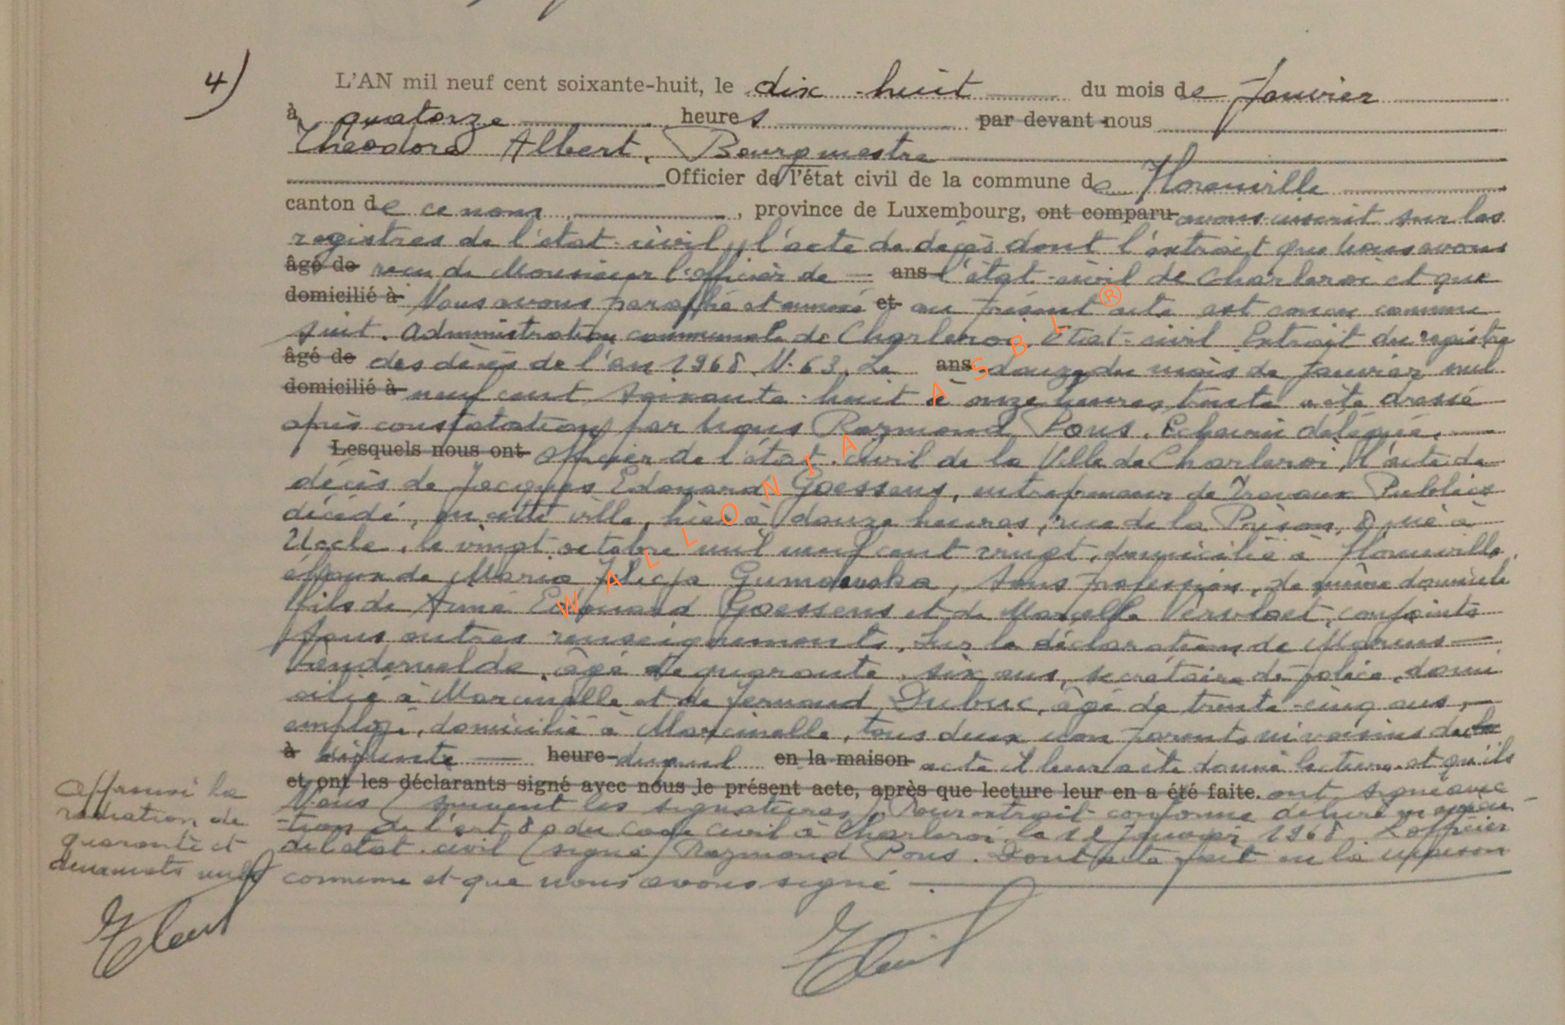 4) L'AN mil neuf cent soixante-huit, le dix-huit du mois de Janvier
à quatorze heures par devant nous
Théodore Albert, Bourgmestre
Officier de l'état civil de la commune de Flohimont
canton de ce nom, province de Luxembourg, ont comparu avons inscrit sur les
registres de l'état civil, l'acte de décès dont l'extrait que nous avons
âgé de reçu de Monsieur l'officier de ans l'état-civil de Charleroi et que
domicilié à Nous avons paraphé et annexé et au présent acte est conçu comme
suit. Administration communale de Charleroi. Etat-civil Extrait du registre
âgé de des décès de l'an 1968. N. 63. Le ans douze du mois de Janvier mil
domicilié à neuf cent soixante-huit à onze heures trente acte dressé
après constatation par Nous Raymond Pons, Echevin délégué,
Lesquels nous ont officier de l'état-civil de la Ville de Charleroi, l'acte de
décès de Jacques Edouard Goessens, entrepreneur de Travaux Publics
décédé, en cette ville, hier à douze heures, rue de la Prison, 8, né à
Uccle, le vingt octobre mil neuf cent vingt, domicilié à
époux de Maria Alicja Gumowska, sans profession, de même domicile
fils de Aimé Edouard Goessens et de Marcelle Vervloet, conjoints
sans autres renseignements. Sur la déclaration de Marius
Vandervelde, âgé de quarante-six ans, secrétaire de police, domi
cilié à Marcinelle et de Fernand Dubuc, âgé de trente-cinq ans,
employé, domicilié à Marcinelle, tous deux non parents ni voisins de
à heure duquel en la maison acte il leur a été donné lecture et qu'ils
et ont les déclarants signé avec nous le présent acte, après que lecture leur en a été faite. ont signé avec
Nous (suivent les signatures) Pour extrait conforme délivré en exécu-
tion de l'art 80 du code civil à Charleroi le Janvier 1968 L'officier
de l'état-civil (signé) Raymond Pons. Dont acte fait en la maison
commune et que nous avons signé
Approuvé la
radiation de
quarante et
mots nuls
WALLONIA ASBL ®